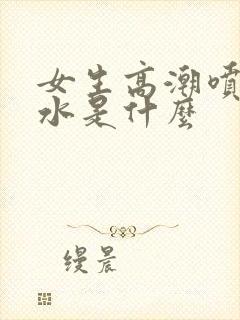 女生高潮噴
水是什麼
缦晨